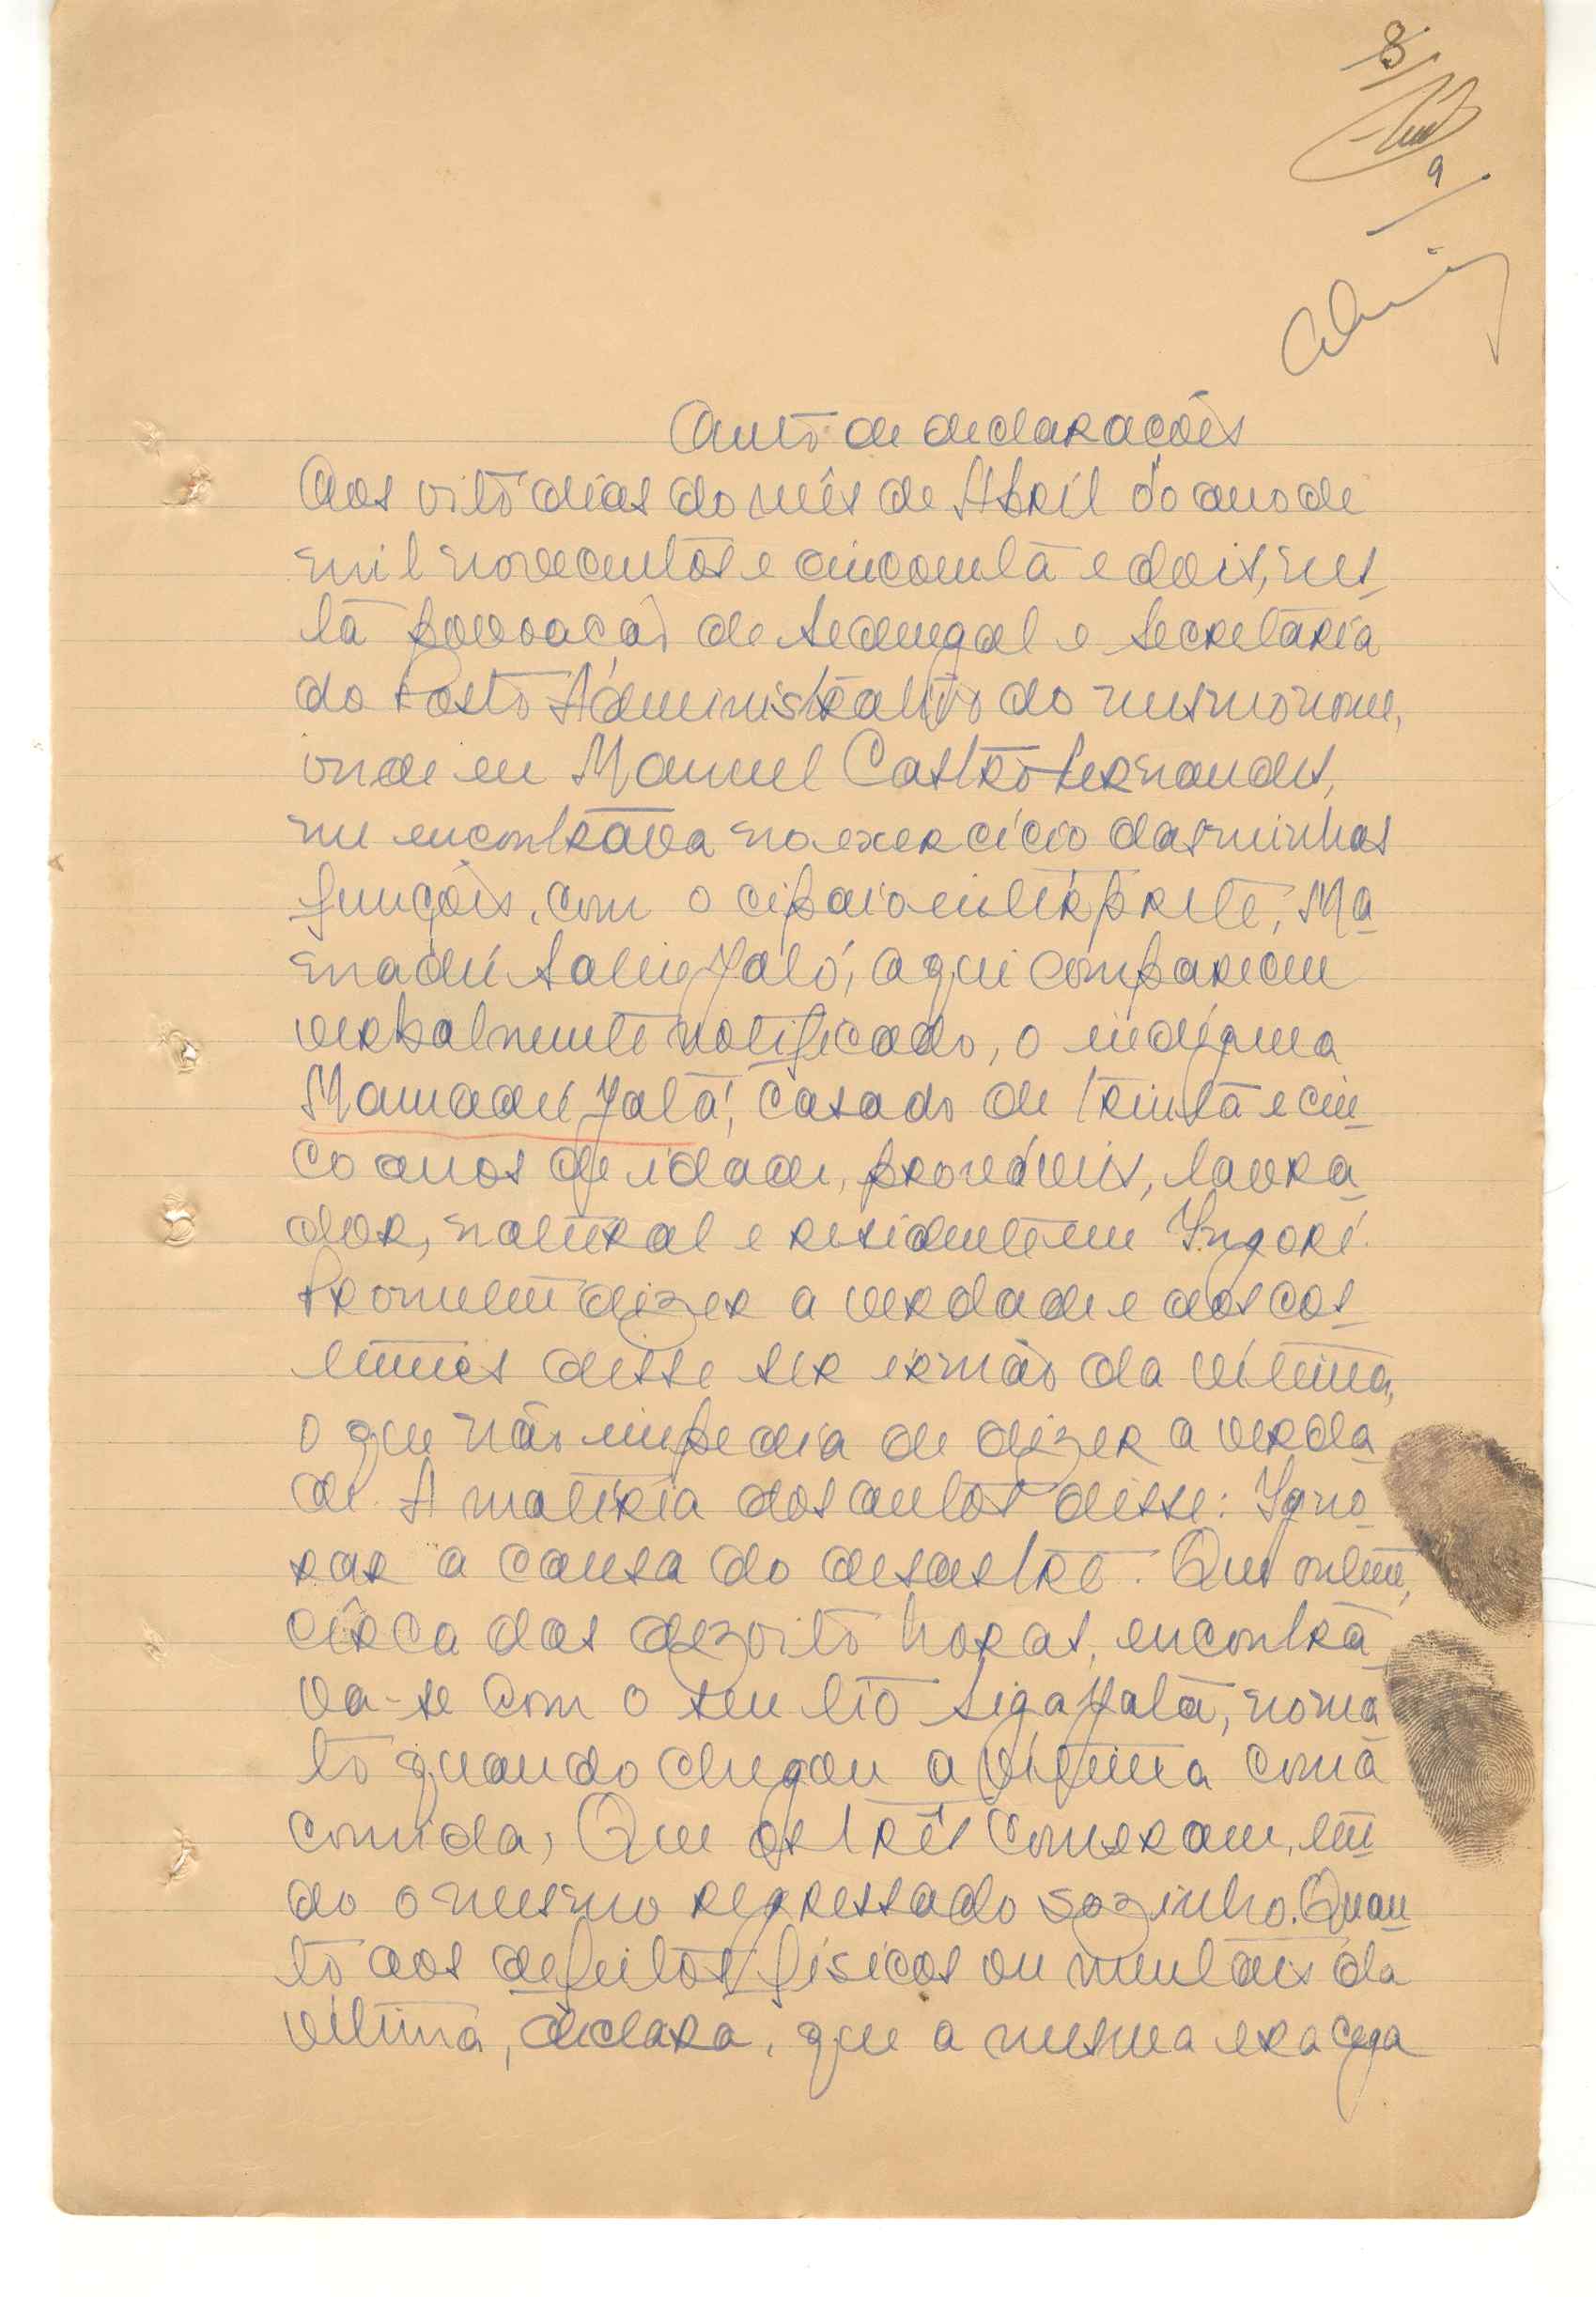 8
9
Auto de declarações
Aos oito dias do mês de Abril do ano de
mil novecentos e cincoenta e dois, nes-
ta povoação de Sedengal e Secretaria
do Posto Administrativo do mesmo nome,
onde eu Manuel Castro Fernandes,
me encontrava no exercício das minhas
funções, com o cipaio intérprete, Ma-
madú Saliu Jaló, aqui compareceu
verbalmente notificado, o indígena
Mamadú Jatá, casado de trinta e cin-
co anos de idade, prováveis, lavra-
dor, natural e residente em Ingoré.
Prometeu dizer a verdade e aos cos-
tumes disse ser irmão da vítima,
o que não impedia de dizer a verda-
de. A matéria dos autos disse: Igno-
rar a causa do desastre. Que ontem,
cêrca das dezoito horas, encontra-
va-se com o seu tio Siga Jatá, no ma-
to quando chegou a vítima com a
comida, Que os três comeram, ten-
do o mesmo regressado sozinho. Quan-
to aos defeitos físicos ou mentais da
vítima, declara, que a mesma era cega